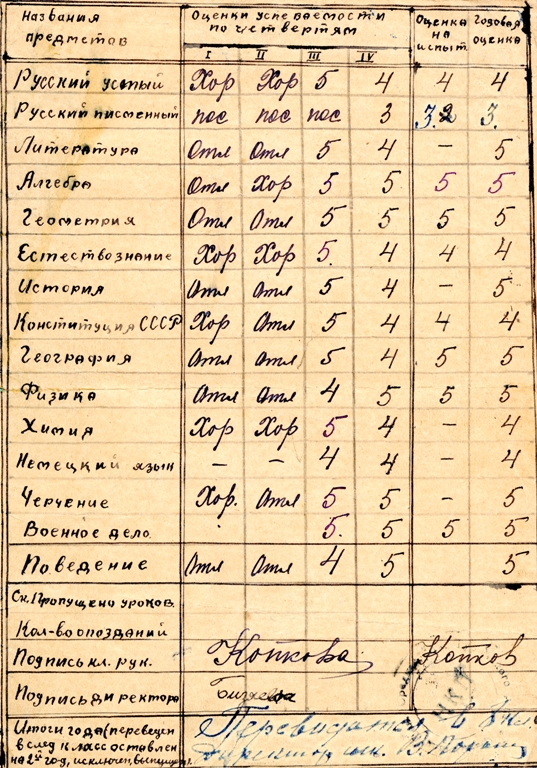 Названия предметов
Оценки успеваемости по четвертям
Оценка на испыт.
Годовая оценка
I II III IV
Русский устный Хор Хор 5 4 4 4
Русский писменный пос пос пос 3 3.2 3.
Литература Отл Отл 5 4 – 5
Алгебра Отл Хор 5 5 5 5
Геометрия Отл Отл 5 5 5 5
Естествознание Хор Хор 5. 4 4 4
История Отл Отл 5 4 – 5
Конституция СССР Хор Отл 5 4 4 4
География Отл Отл 5 4 5 5
Физика Отл Отл 4 5 5 5
Химия Хор Хор 5 4 – 4
Немецкий язык – – 4 4 – 4
Черчение Хор. Отл 5 5 – 5
Военное дело. 5. 5 5 5
Поведение Отл Отл 4 5 5
Ск. Пропущено уроков.
Кол-во опозданий
Подпись кл. рук. Копкова Копков
Подпись директора
Итоги года (переведен
в след класс оставлен
на 2й год, исключен, выпущен)
Директор шк.